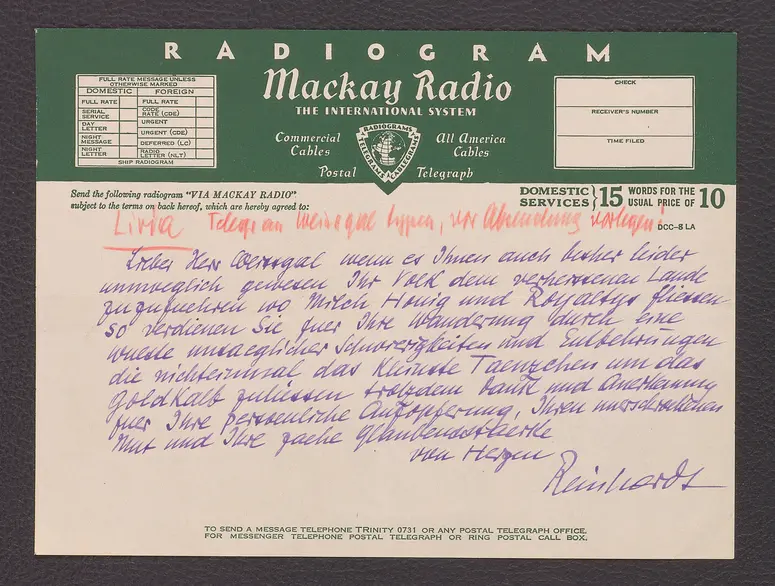 RADIOGRAM
Mackay Radio
THE INTERNATIONAL SYSTEM
Commercial Cables
All America Cables
Postal Telegraph
RADIOGRAMS
TELEGRAMS
CABLEGRAMS
FULL RATE MESSAGE UNLESS
OTHERWISE MARKED
DOMESTIC FOREIGN
FULL RATE FULL RATE
SERIAL SERVICE CODE RATE (CDE)
DAY LETTER URGENT
NIGHT MESSAGE URGENT (CDE)
DEFERRED (LC)
NIGHT LETTER RADIO LETTER (NLT)
SHIP RADIOGRAM
CHECK
RECEIVER'S NUMBER
TIME FILED
Send the following radiogram "VIA MACKAY RADIO"
subject to the terms on back hereof, which are hereby agreed to:
DOMESTIC SERVICES } 15 WORDS FOR THE USUAL PRICE OF 10
DCC-8 LA
Livia Telegram Weisgal typen, vor Absendung vorlegen!
Lieber Herr Weisgal wenn es Ihnen auch bisher leider
unmoeglich gewesen Ihr Volk dem verheissenen Lande
zuzufuehren wo Milch Honig und Royaltys fliessen
so verdienen Sie fuer Ihre Wanderung durch eine
wueste unsaeglicher Schwierigkeiten und Entbehrungen
die nichteinmal das kleinste Taenzchen um das
Goldkalb zuliessen trotzdem Dank und Anerkennung
fuer Ihre persoenliche Aufopferung, Ihren unerschrockenen
Mut und Ihre zaehe Glaubensstaerke
von Herzen
Reinhardt
TO SEND A MESSAGE TELEPHONE TRINITY 0731 OR ANY POSTAL TELEGRAPH OFFICE.
FOR MESSENGER TELEPHONE POSTAL TELEGRAPH OR RING POSTAL CALL BOX.